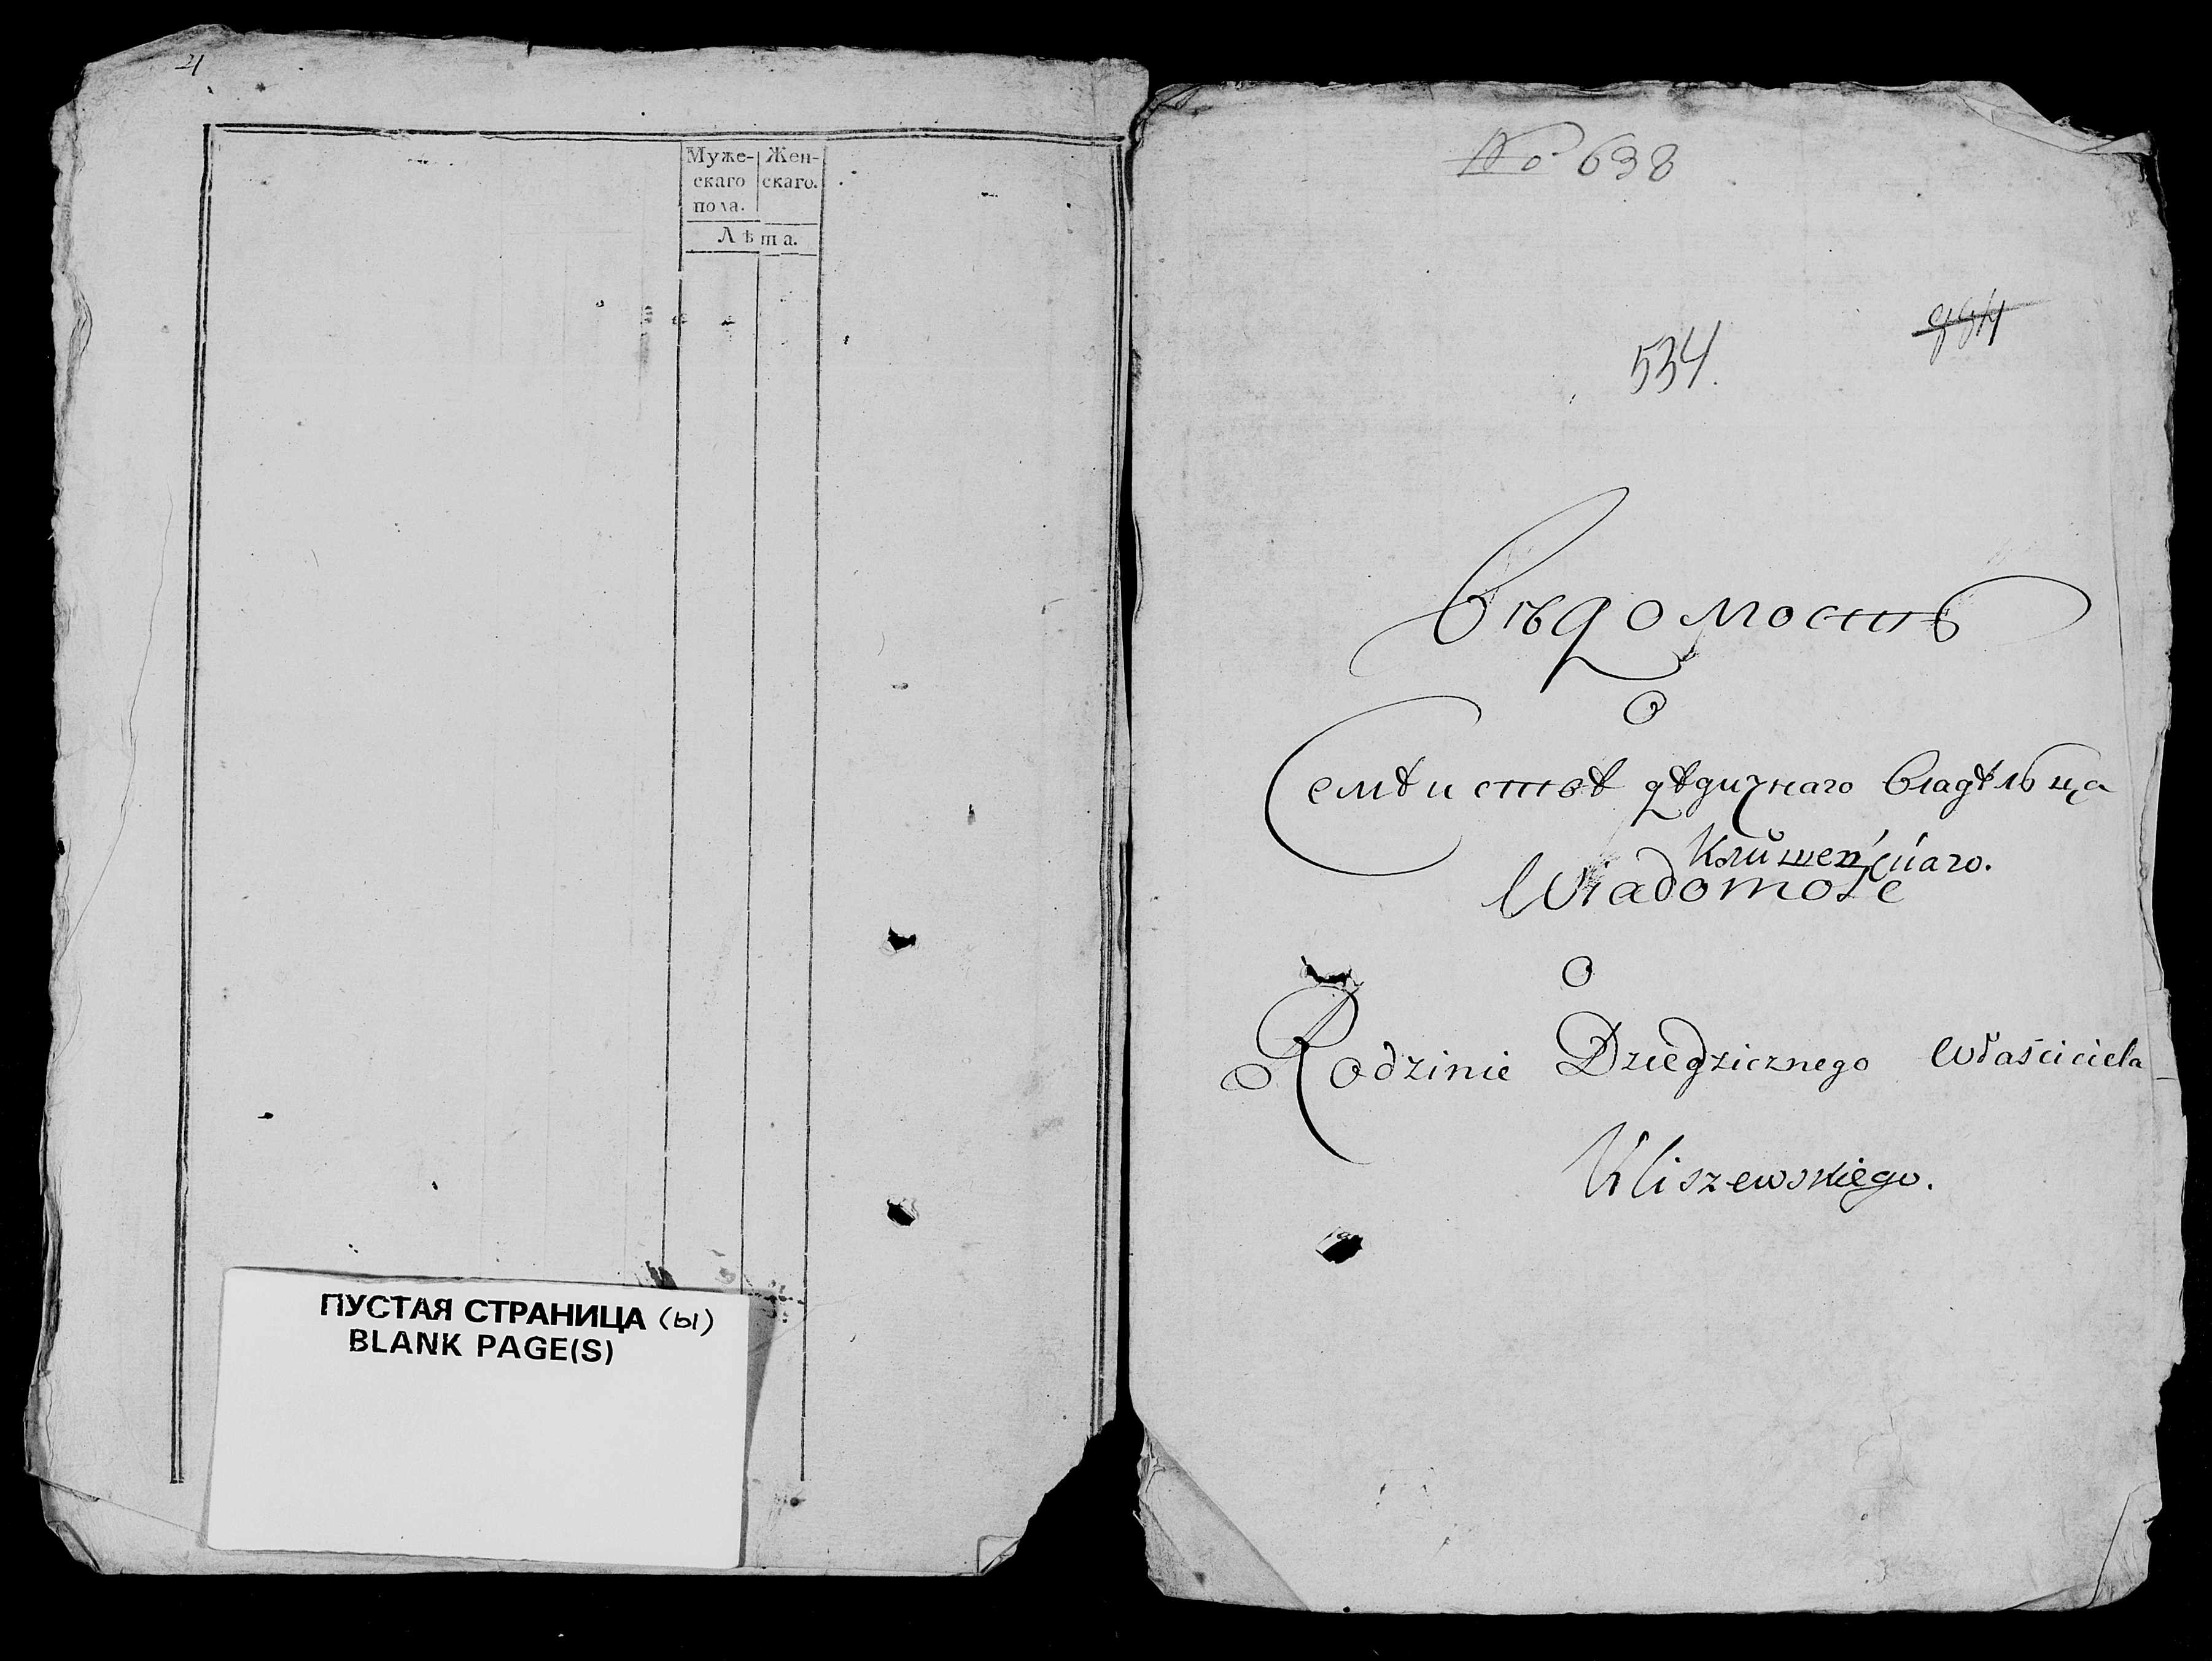 21
Муже-
скаго
пола.
Жен-
скаго.
Лѣта.
ПУСТАЯ СТРАНИЦА (ы)
BLANK PAGE(S)
No 638
534.
Вѣдомость
О
Семѣиствѣ дѣдичнаго владѣльца
Wiadomość
O
Rodzinie Dziedzicznego właściciela
Kliszewskiego.